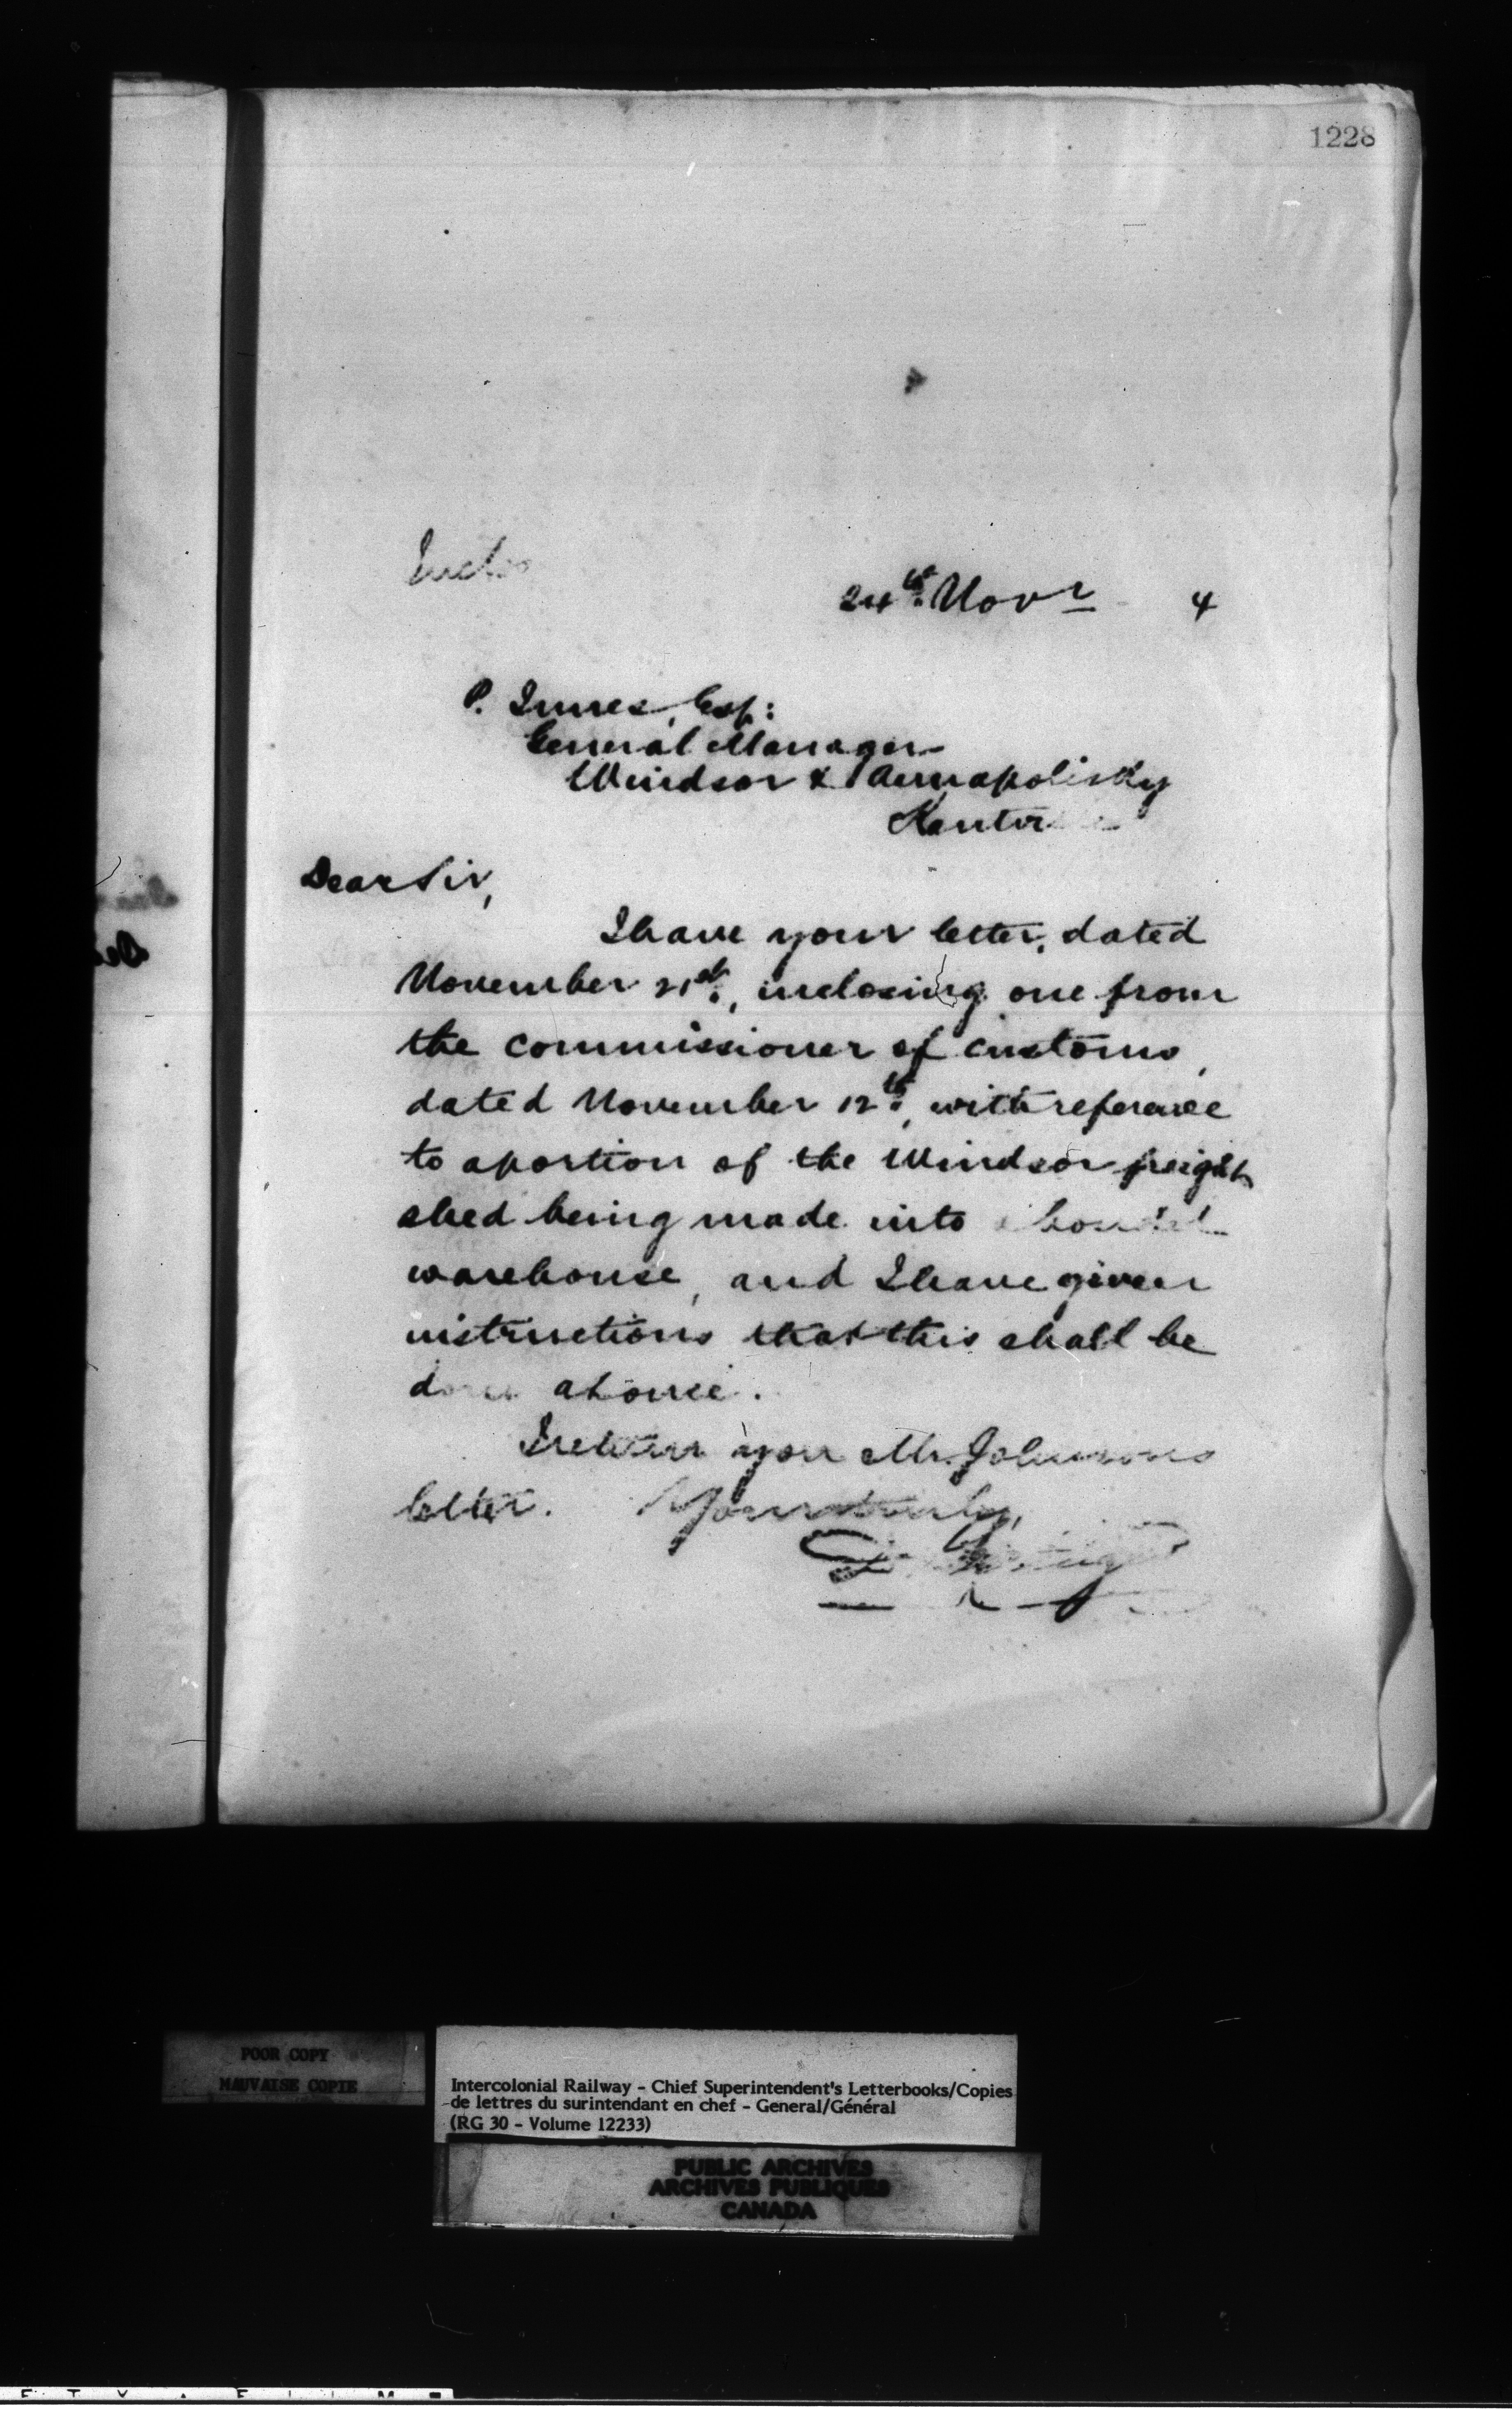 1228
24th Novr 4
P. Innes, Esq:
General Manager
Windsor & Annapolis Ry
Dear Sir,
I have your letter, dated
November 21st, inclosing one from
the commissioner of customs,
dated November 12th, with reference
to a portion of the Windsor freight
shed being made into a bonded
warehouse, and I have given
instructions that this shall be
done at once.
I return you Mr. Johnsons
letter. Yours truly,
POOR COPY
MAUVAISE COPIE
Intercolonial Railway - Chief Superintendent's Letterbooks/Copies
de lettres du surintendant en chef - General/Général
(RG 30 - Volume 12233)
PUBLIC ARCHIVES
ARCHIVES PUBLIQUES
CANADA